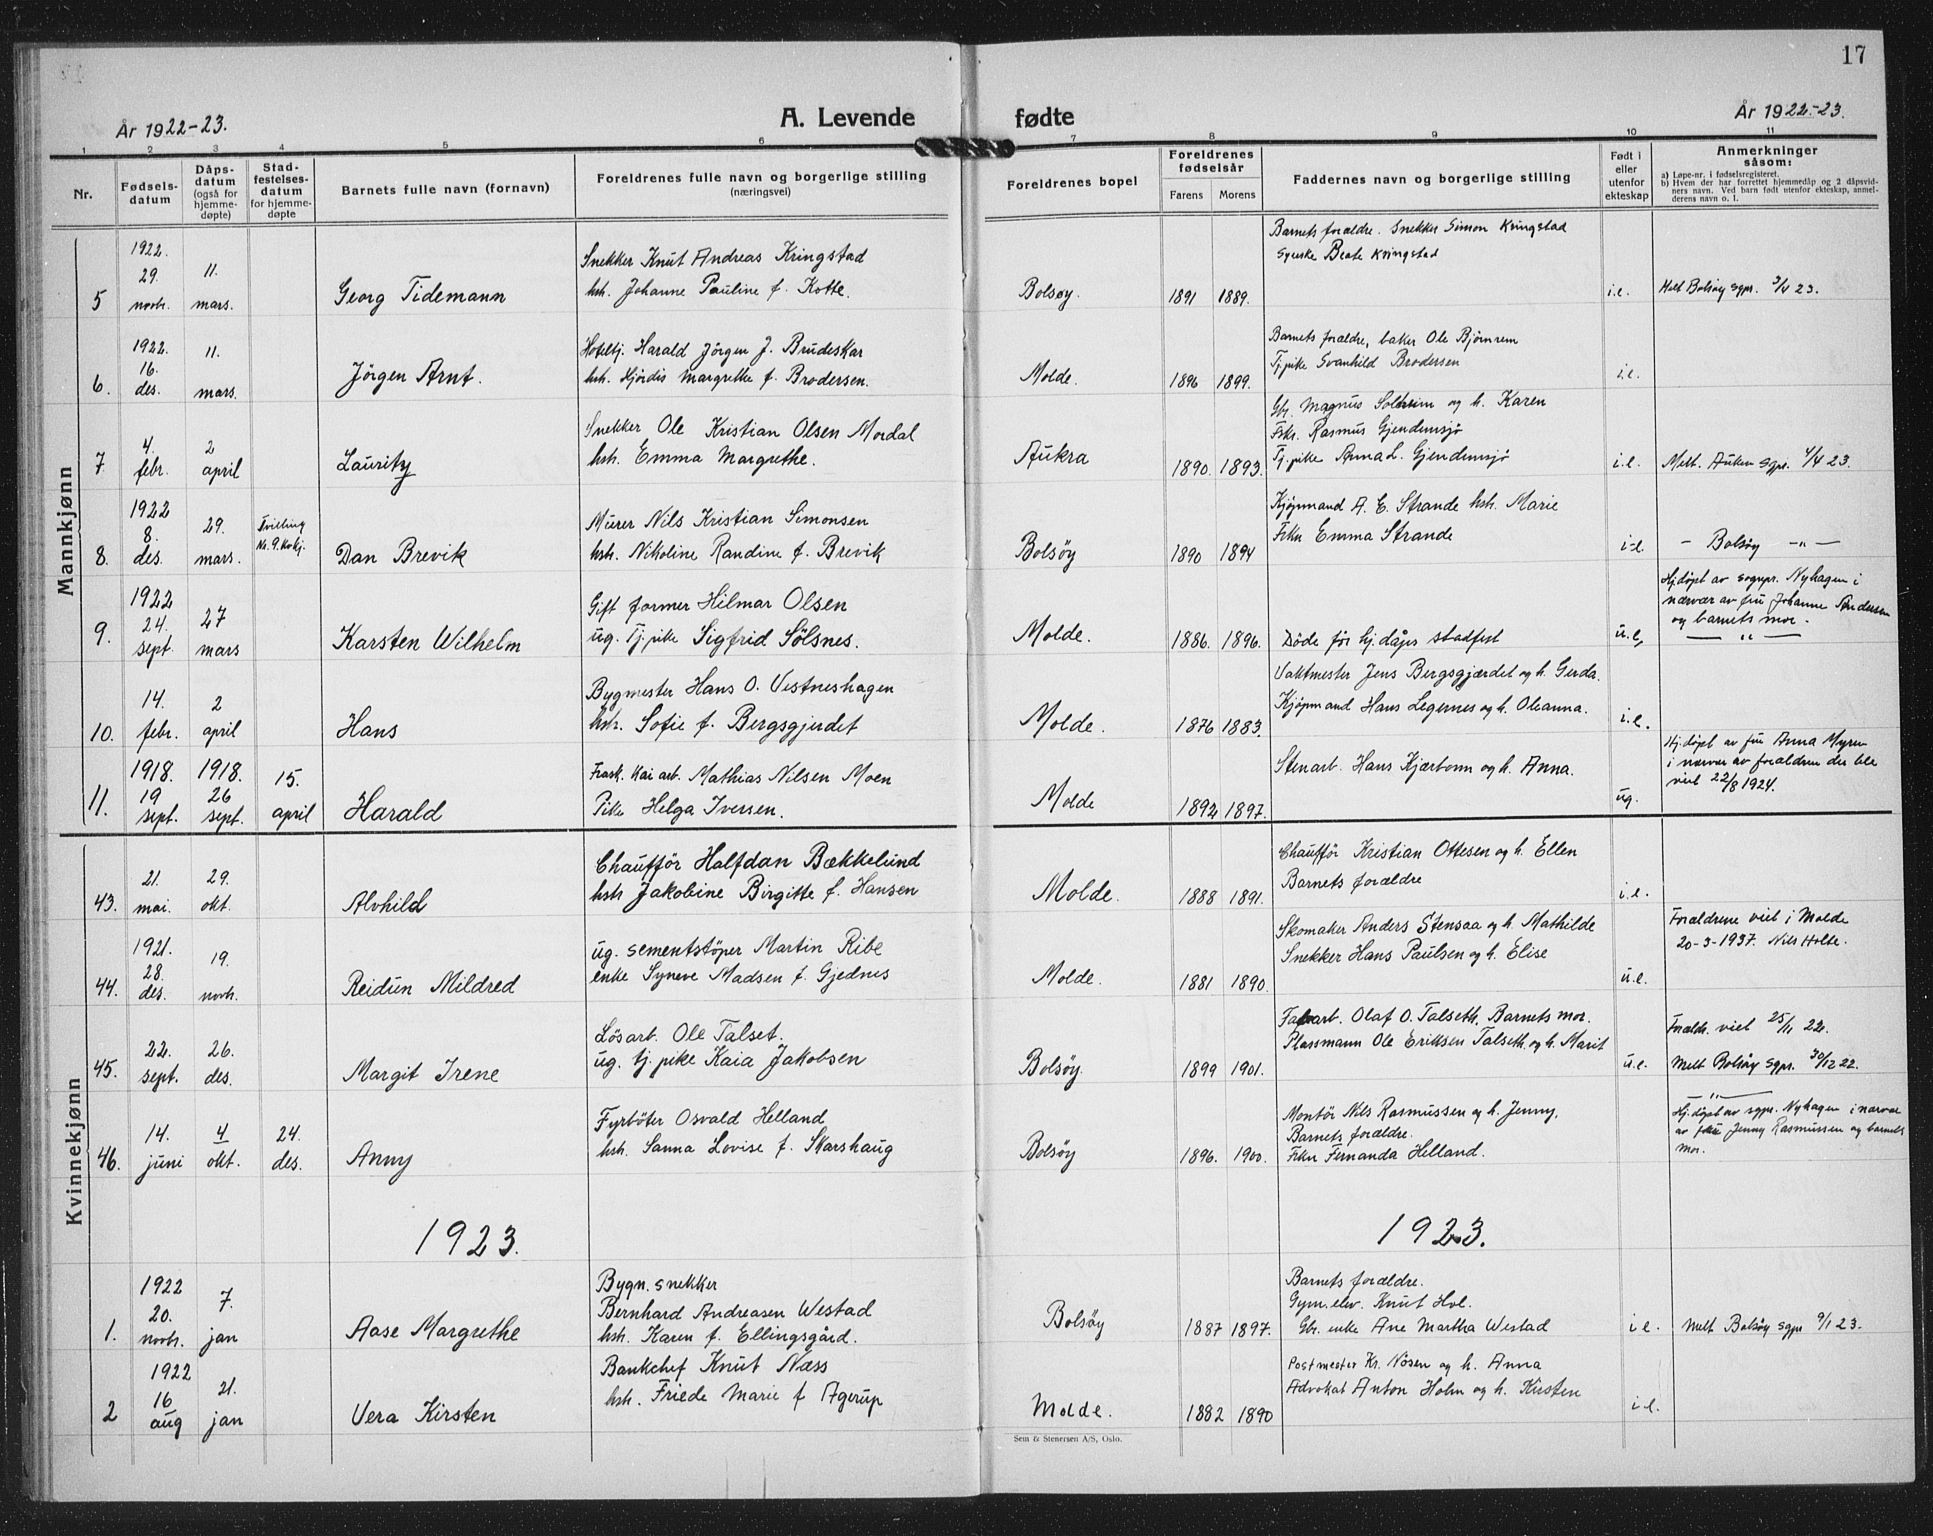 17
År 1922-23.
A. Levende fødte
År 1922-23.
1 2 3 4 5 6 7 8 9 10 11
Nr.
Fødsels-
datum
Dåps-
datum
(også for
hjemme-
døpte)
Stad-
festelses-
datum
for hjemme-
døpte
Barnets fulle navn (fornavn)
Foreldrenes fulle navn og borgerlige stilling
(næringsvei)
Foreldrenes bopel
Foreldrenes
fødselsår
Farens Morens
Faddernes navn og borgerlige stilling
Født i
eller
utenfor
ekteskap
Anmerkninger
såsom:
a) Løpe-nr. i fødselsregisteret.
b) Hvem der har forrettet hjemmedåp og 2 dåpsvid-
ners navn. Ved barn født utenfor ekteskap, anmel-
derens navn o. l.
Mannkjønn
5
1922.
29
novb.
11.
mars.
Georg Tidemann
Snekker Knut Andreas Kringstad
hst. Johanne Pauline f. Kotte.
Bolsøy.
1891 1889.
Barnets forældre. Snekker Simon Kringstad
Syerske Beate Kringstad
i.e.
Melt Bolsøy sgpr. 3/4 23.
6.
1922.
16.
des.
11.
mars.
Jörgen Arnt.
Hotelbj. Harald Jörgen J. Brudeskar
hst. Hjördis Margrethe f. Brodersen.
Molde.
1896 1899.
Barnets forældre, baker Ole Bjørnrem
Tj.pike Svanhild Brodersen
i.e.
7
4.
febr.
2
april
Lauritz
Snekker Ole Kristian Olsen Mordal
hst. Emma Margrethe.
Aukra
1890. 1893.
Gbr. Magnus Solheim og h. Karen
Fskr. Rasmus Gjendemsjø
Tj.pike Anna L. Gjendemsjø
i.e.
Melt. Auken sgpr. 4/4 23.
8.
1922
8.
des.
29.
mars.
Tvilling
Nr. 9. Kvkj.
Dan Brevik
Murer Nils Kristian Simonsen
hst. Nikoline Randine f. Brevik
Bolsöy
1890 1894
Kjøpmand A. E. Strande hst. Marie
Frkn Emma Strande
i-e.
- Bolsøy -"-
9.
1922
24.
sept.
27
mars
Karsten Wilhelm
Gift former Hilmar Olsen
ug. Tj.pike Sigfrid Sölsnes.
Molde.
1886. 1896.
Døde før hj.dåps stadfest
u.e,
Hj.døpt av sognpr. Nyhagen i
nærvær av fru Johanne Andersen
og barnets mor.
-"-
10.
14.
febr.
2
april
Hans
Bygmester Hans O. Vestneshagen
hst. Sofie f. Bergsgjerdet
Molde.
1876 1883.
Vaktmester Jens Bergsgjærdet og h. Gerda.
Kjøpmand Hans Legernes og h. Oleanna.
i.e.
11.
1918.
19
sept.
1918.
26
sept.
15.
april
Harald
Frask. Kai arb. Mathias Nilsen Moen
Pike Helga Iversen.
Molde
1892 1897.
Stenarb. Hans Kjærbonn og h. Anna.
ug.
Hj.døpt av fru Anna Myren
i nærvær av forældrene der ble
viet 22/8 1924.
Kvinnekjønn
43.
21.
mai.
29.
okt.
Alvhild
Chauffør Halfdan Bækkelund
hst. Jakobine Birgitte f. Hansen
Molde.
1888 1891.
Chauffør Kristian Ottesen og h. Ellen
Barnets forældre
i.e.
44.
1921.
28.
des.
19.
novb.
Reidun Mildred
ug. sementstöper Martin Ribe
enke Syneve Madsen f. Gjednes
Molde.
1881 1890.
Skomaker Anders Stensaa og h. Mathilde
Snekker Hans Paulsen og h. Elise
u.e.
Forældrene viet i Molde
20-3-1937. Nils Holte.
45.
22.
sept.
26.
des.
Margit Irene
Løsarb. Ole Talset.
ug. tj.pike Kaia Jakobsen
Bolsøy.
1899 1901.
Fabarb. Olaf O. Talseth. Barnets mor.
Plassmann Ole Eriksen Talseth og h. Marit
u.e.
Foreldr. viet 25/11 22.
Melt Bolsøy sgpr. 30/12 22.
46.
14.
juni
4
okt.
24.
des.
Anny
Fyrbøter Osvald Helland
hst. Sanna Lovise f. Skarshaug
Bolsøy
1896. 1900.
Montør Nils Rasmussen og h. Jenny.
Barnets forældre.
Frkn Fernanda Helland.
-"-
Hj.døpt av sgpr. Nyhagen i nærvær
av fru Jenny Rasmussen og barnets
mor.
1923.
1923.
1.
1922
20.
novb.
7.
jan
Aase Margrethe
Bygn. snekker
Bernhard Andreasen Westad
hst. Karen f. Ellingsgård.
Bolsøy
1887 1897.
Barnets forældre.
Gym. elev. Knut Hol.
Gbr. enke Ane Martha Westad
i e.
Melt Bolsøy sgpr 9/1 23.
2
1922
16
aug
21.
jan
Vera Kirsten
Bankchef Knut Næss
hst. Friede Marie f Agerup
Molde.
1882 1890
Postmester Kr. Nösen og h. Anna
Advokat Anton Holm og h. Kirsten
i e.
Sem & Stenersen A/S, Oslo.